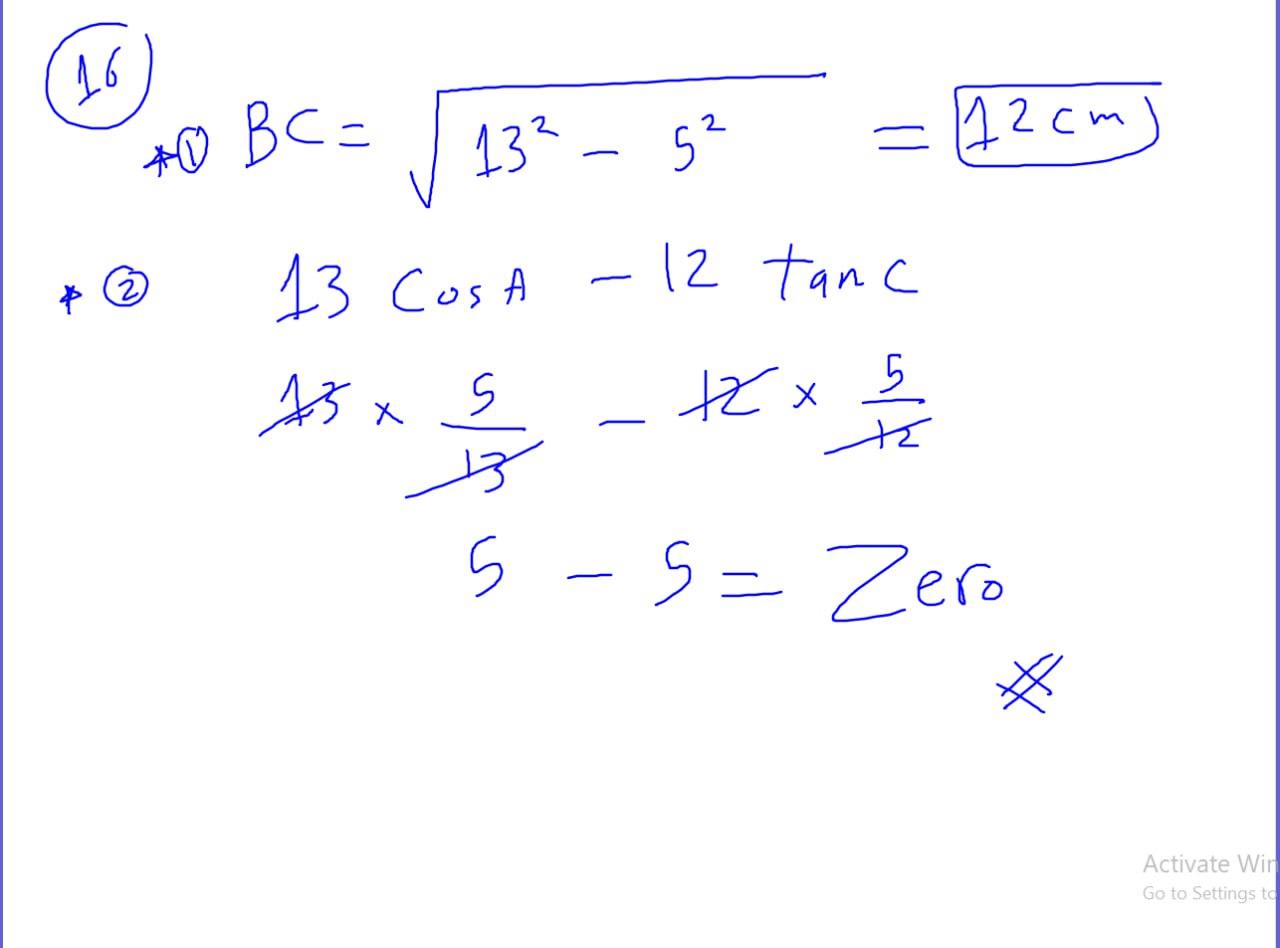 16
* ① BC = √(13² - 5²) = 12 cm
* ② 13 Cos A - 12 tan C
13 × 5/13 - 12 × 5/12
5 - 5 = Zero
Activate Win
Go to Settings to